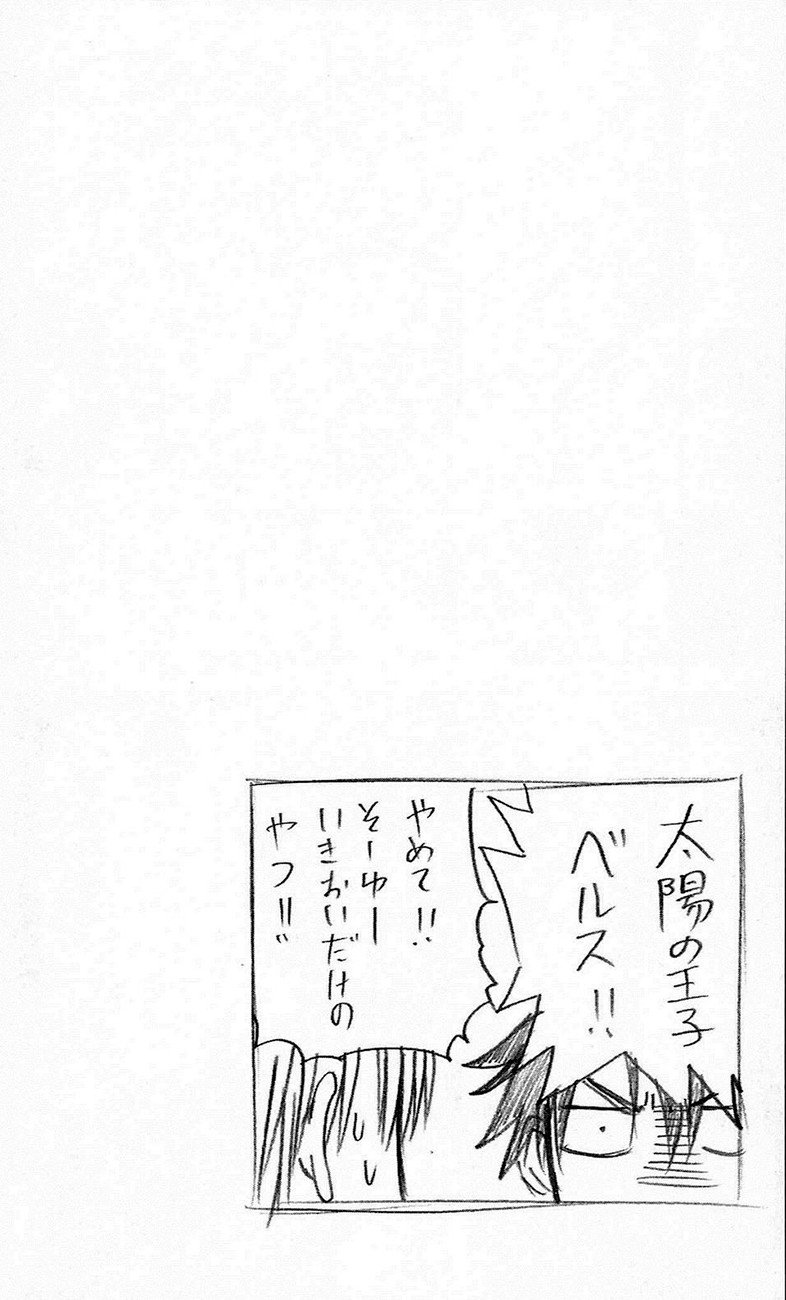 太陽の王子
ベルス!!
やめて!!
そーゆー
いきおいだけの
やつ!!